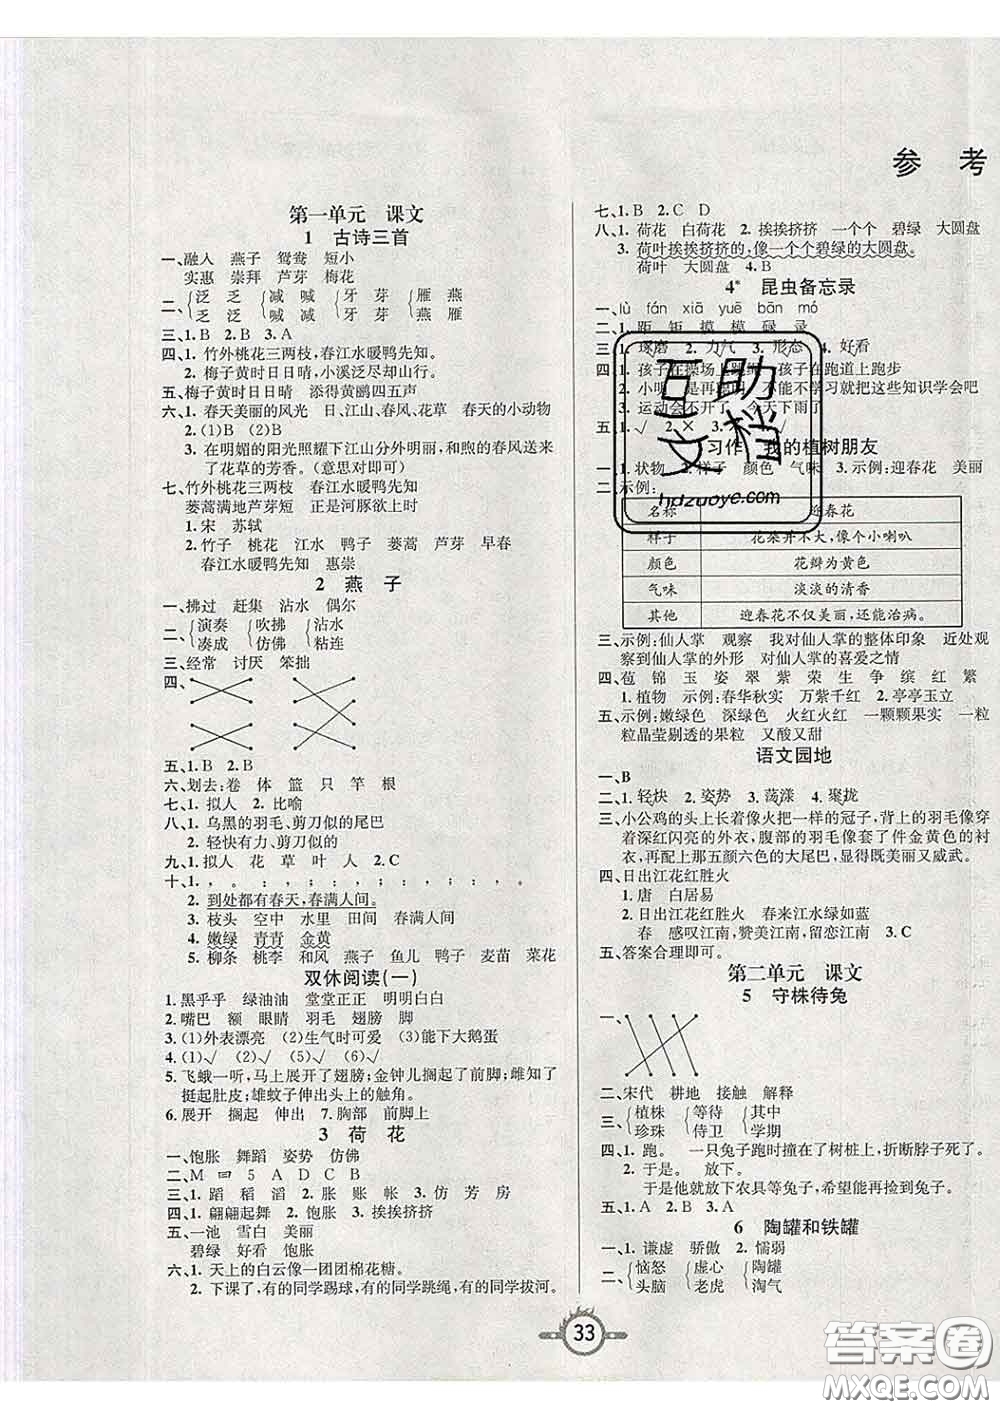 参 考
第一单元 课文
1 古诗三首
一、融入 燕子 鸳鸯 短小
实惠 崇拜 芦芽 梅花
二、泛 乏 减 喊 牙 芽 雁 燕
泛 乏 减 喊 牙 芽 燕 雁
三、1.B 2.B 3.A
四、1.竹外桃花三两枝,春江水暖鸭先知。
2.梅子黄时日日晴,小溪泛尽却山行。
五、梅子黄时日日晴 添得黄鹂四五声
六、1.春天美丽的风光 日、江山、春风、花草 春天的小动物
2.(1)B (2)B
3.在明媚的阳光照耀下江山分外明丽,和煦的春风送来
了花草的芳香。(意思对即可)
七、竹外桃花三两枝 春江水暖鸭先知
蒌蒿满地芦芽短 正是河豚欲上时
1.宋 苏轼
2.竹子 桃花 江水 鸭子 蒌蒿 芦芽 早春
春江水暖鸭先知 惠崇
2 燕 子
一、拂过 赶集 沾水 偶尔
二、演奏 吹拂 沾水
凑成 仿佛 粘连
三、经常 讨厌 笨拙
四、
五、1.B 2.B
六、划去:卷 体 篮 只 竿 根
七、1.拟人 2.比喻
八、1.乌黑的羽毛、剪刀似的尾巴
2.轻快有力、剪刀似的
九、1.拟人 花 草 叶 人 2.C
十、1. , 。 : , ; , ; , ; , 。
2.到处都有春天,春满人间。
3.枝头 空中 水里 田间 春满人间
4.嫩绿 青青 金黄
5.柳条 桃李 和风 燕子 鱼儿 鸣鸟 麦苗 菜花
双休阅读(一)
1.黑乎乎 绿油油 堂堂正正 明明白白
2.嘴巴 额 眼睛 羽毛 翅膀 脚
3.(1)外表漂亮 (2)生气时可爱 (3)能下大鹅蛋
4.(1)√ (2)√ (5)√ (6)√
5.飞蛾一听,马上展开了翅膀;金钟儿搁起了前脚;雌知了
挺起肚皮;雄蚊子伸出头上的触角。
6.展开 搁起 伸出 7.胸部 前脚
3 荷 花
一、饱胀 舞蹈 姿势 仿佛
二、M 5 A D C B
三、1.蹈 稻 滔 2.胀 账 帐 3.仿 芳 房
四、1.翩翩起舞 2.饱胀 3.挨挨挤挤
五、一池 雪白 美丽
碧绿 好看 饱胀
六、1.天上的白云像一团团棉花糖。
2.下课了,有的同学踢球,有的同学跳绳,有的同学拔河。
七、1.B 2.C D
八、1.荷花 白荷花 2.挨挨挤挤 一个个 碧绿 大圆盘
3.荷叶挨挨挤挤的,像一个个碧绿的大圆盘。
荷叶 大圆盘 4.B
4* 昆虫备忘录
一、lù fán xiā yuē bān mó
二、1.距 矩 摸 模 碌 录
三、1.琢磨 2.力气 3.形态 4.好看
四、1.孩子在操场上跳绳 孩子在跑道上跑步
2.小明 是再聪明 不能不学习就把这些知识学会吧
3.运动会不开了 今天下雨了
五、1.√ 2.× 3.√ √
习作 我的植树朋友
一、1.状物 2.样子 颜色 气味 3.示例:迎春花 美丽
二、示例:
名称 迎春花
样子 花朵并不大,像个小喇叭
颜色 花瓣为黄色
气味 淡淡的清香
其他 迎春花不仅美丽,还能治病。
三、示例:仙人掌 观察 我对仙人掌的整体印象 近处观
察到仙人掌的外形 对仙人掌的喜爱之情
四、苞 锦 玉 姿 翠 紫 荣 生 争 缤 红 繁
1.植物 示例:春华秋实 万紫千红 2.亭亭玉立
五、示例:嫩绿色 深绿色 火红火红 一颗颗果实 一粒
粒晶莹剔透的果粒 又酸又甜
语文园地
一、B
二、1.轻快 2.姿势 3.荡漾 4.聚拢
三、小公鸡的头上长着像火把一样的冠子,背上的羽毛像穿
着深红闪亮的外衣,腹部的羽毛像套了件金黄色的衬
衣,再配上那五颜六色的大尾巴,显得既美丽又威武。
四、日出江花红胜火
1.唐 白居易
2.日出江花红胜火 春来江水绿如蓝
春 感叹江南,赞美江南,留恋江南 3.C
五、答案合理即可。
第二单元 课文
5 守株待兔
一、
二、宋代 耕地 接触 解释
三、植株 等待 其中
珍珠 侍卫 学期
四、1.跑。 一只兔子跑时撞在了树桩上,折断脖子死了。
2.于是。 放下。
于是他就放下农具等兔子,希望能再捡到兔子。
五、1.A 2.B 3.A
6 陶罐和铁罐
一、1.谦虚 骄傲 2.懦弱
二、恼怒 虚心 陶罐
头脑 老虎 淘气
33
互助
文档
hdzuoye.com
答案圈
MXQE.COM